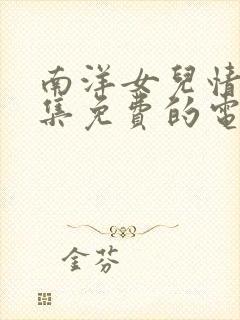 南洋女兒情
集免費的電
金芬